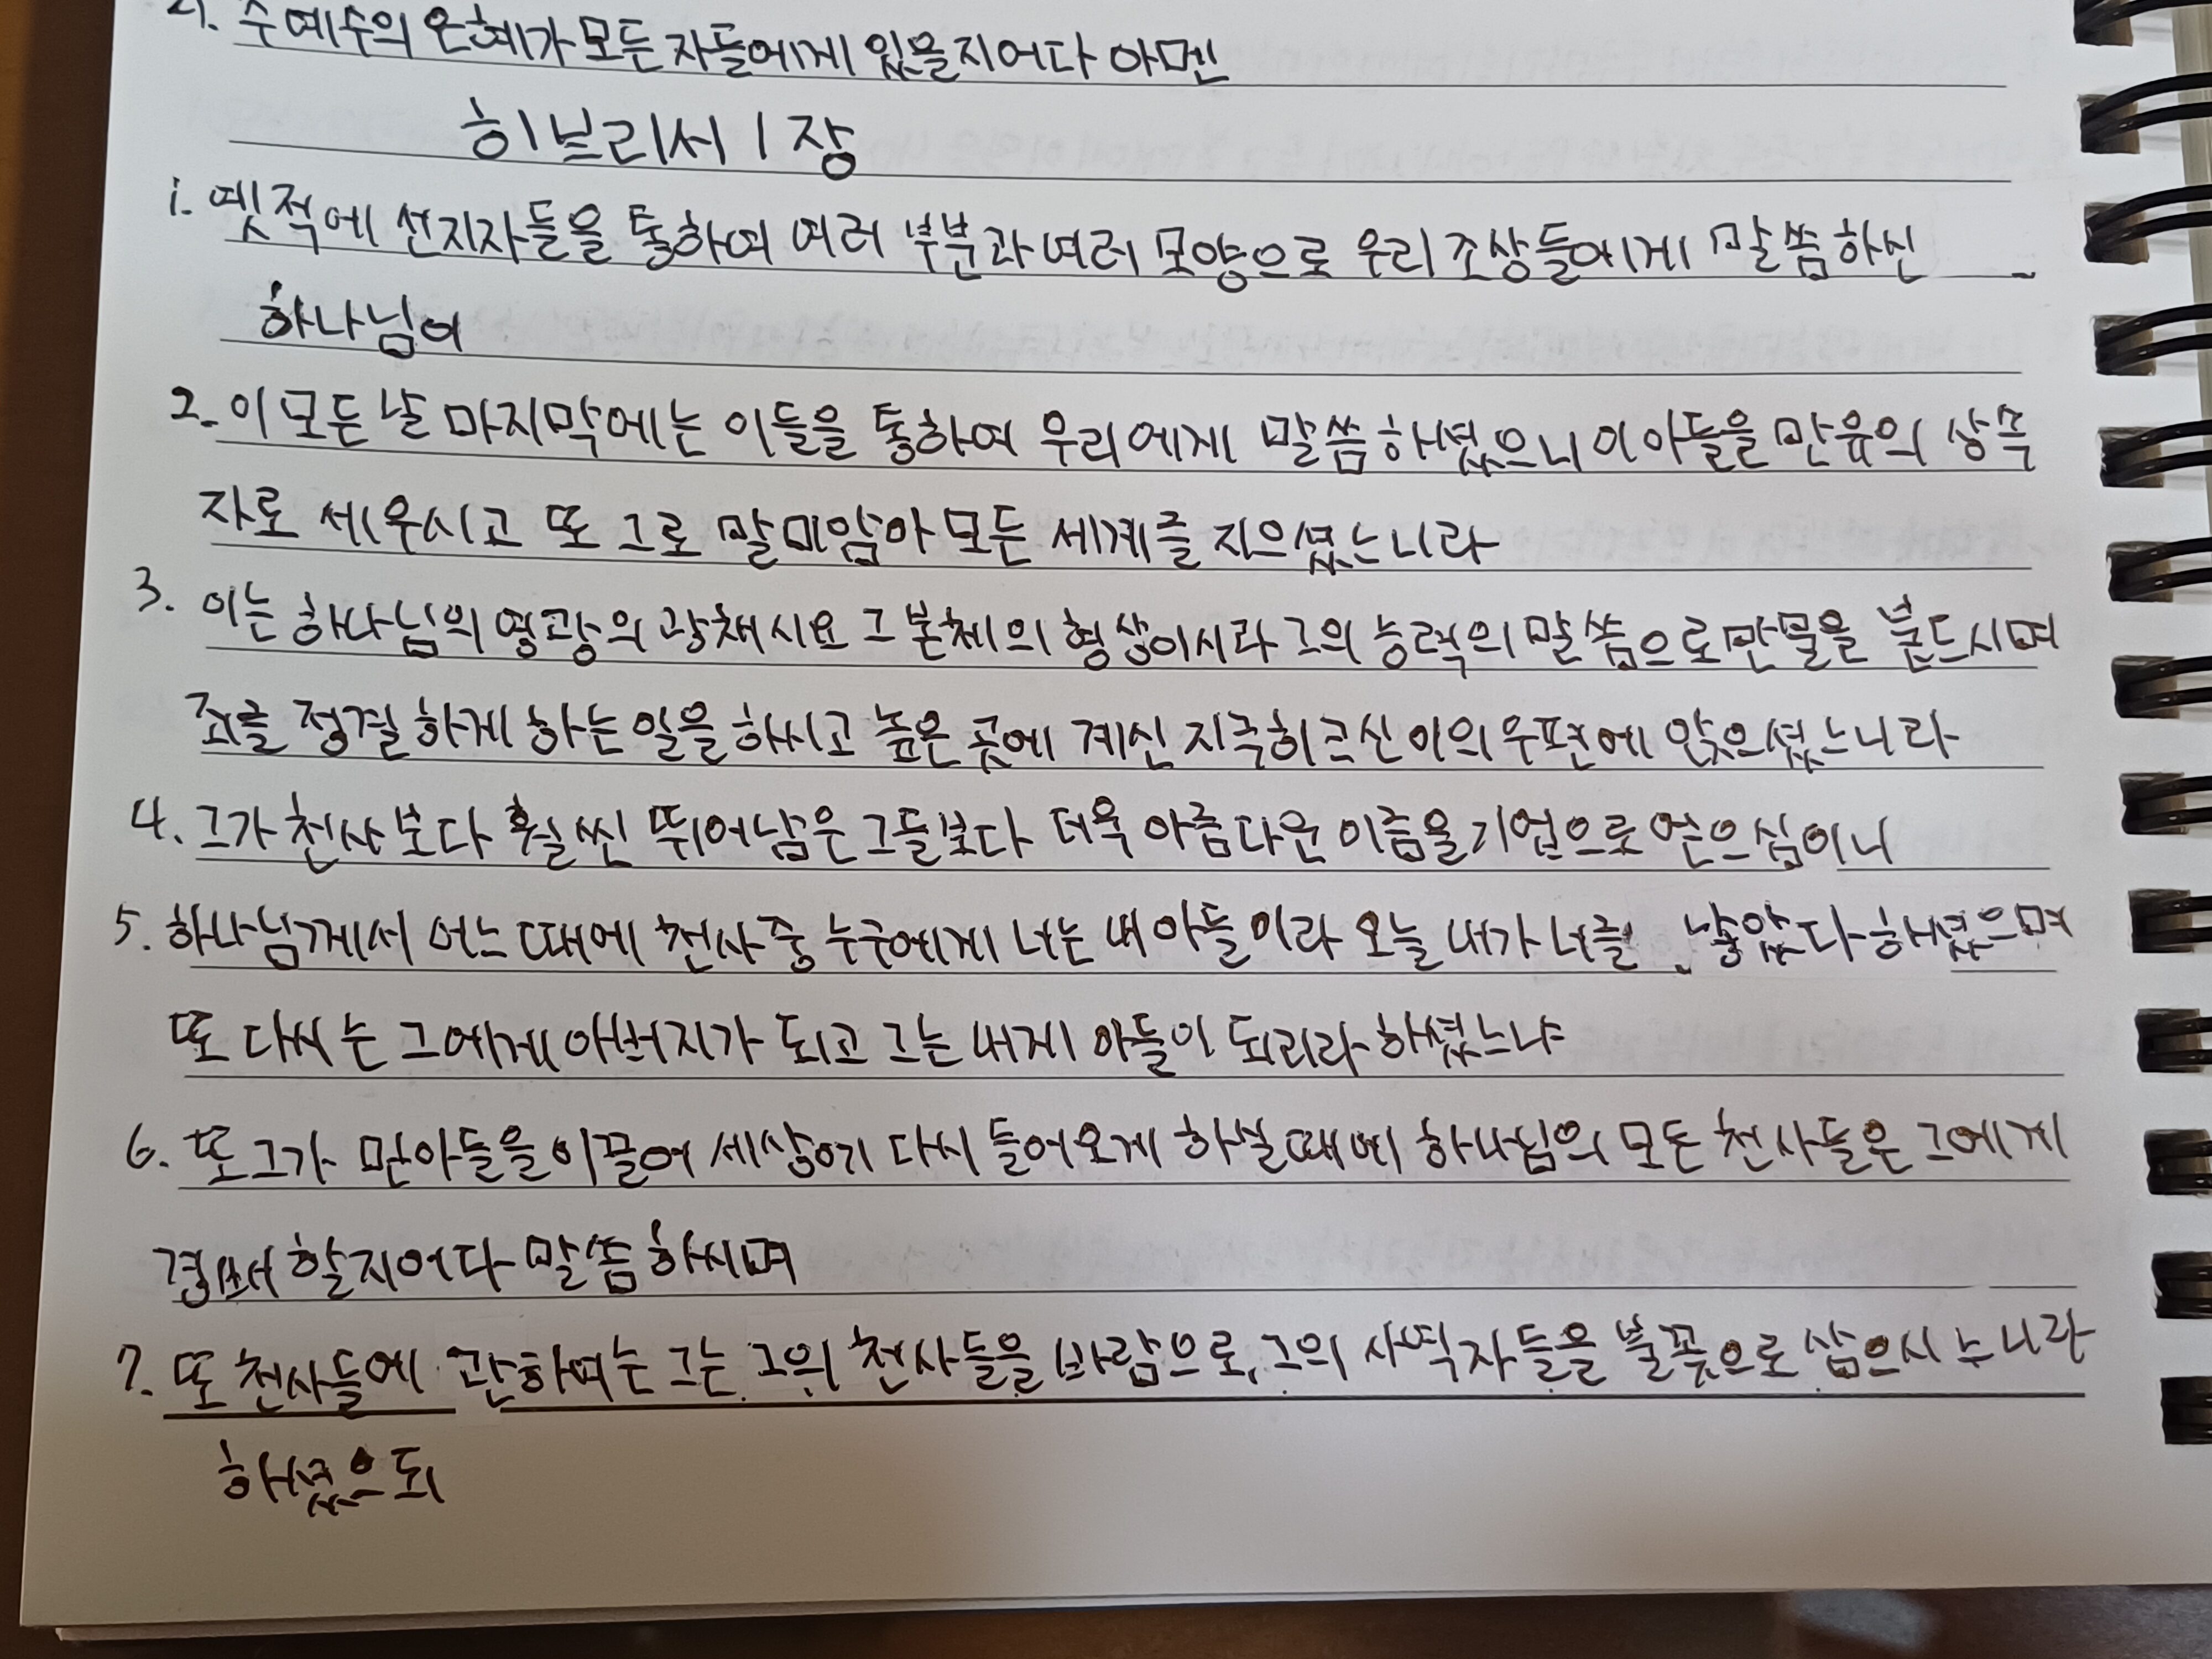 주 예수의 은혜가 모든 자들에게 있을지어다 아멘
히브리서 1장
1. 옛적에 선지자들을 통하여 여러 부분과 여러 모양으로 우리 조상들에게 말씀하신
하나님이
2. 이 모든 날 마지막에는 이들을 통하여 우리에게 말씀하셨으니 이 아들을 만유의 상속
자로 세우시고 또 그로 말미암아 모든 세계를 지으셨느니라
3. 이는 하나님의 영광의 광채시요 그 본체의 형상이시라 그의 능력의 말씀으로 만물을 붙드시며
죄를 정결하게 하는 일을 하시고 높은 곳에 계신 지극히 크신 이의 우편에 앉으셨느니라
4. 그가 천사보다 훨씬 뛰어남은 그들보다 더욱 아름다운 이름을 기업으로 얻으심이니
5. 하나님께서 어느 때에 천사 중 누구에게 너는 내 아들이라 오늘 내가 너를 낳았다 하셨으며
또 다시는 그에게 아버지가 되고 그는 내게 아들이 되리라 하셨느냐
6. 또 그가 맏아들을 이끌어 세상에 다시 들어오게 하실 때에 하나님의 모든 천사들은 그에게
경배할지어다 말씀하시며
7. 또 천사들에 관하여는 그는 그의 천사들을 바람으로, 그의 사역자들을 불꽃으로 삼으시느니라
하셨으되